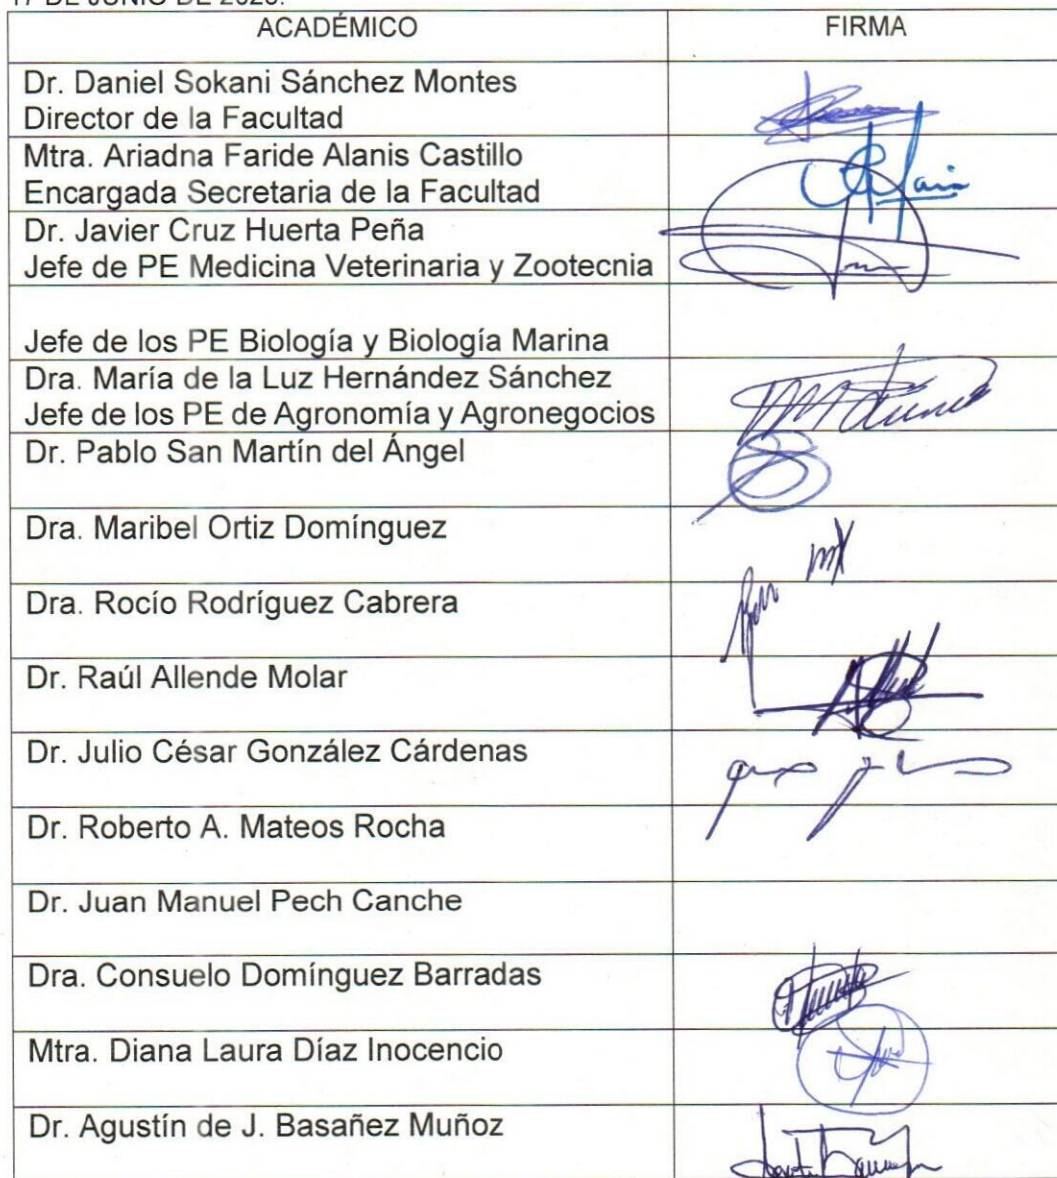 17 DE JUNIO DE 2025.
ACADÉMICO FIRMA
Dr. Daniel Sokani Sánchez Montes
Director de la Facultad
Mtra. Ariadna Faride Alanis Castillo
Encargada Secretaria de la Facultad
Dr. Javier Cruz Huerta Peña
Jefe de PE Medicina Veterinaria y Zootecnia
Jefe de los PE Biología y Biología Marina
Dra. María de la Luz Hernández Sánchez
Jefe de los PE de Agronomía y Agronegocios
Dr. Pablo San Martín del Ángel
Dra. Maribel Ortiz Domínguez
Dra. Rocío Rodríguez Cabrera
Dr. Raúl Allende Molar
Dr. Julio César González Cárdenas
Dr. Roberto A. Mateos Rocha
Dr. Juan Manuel Pech Canche
Dra. Consuelo Domínguez Barradas
Mtra. Diana Laura Díaz Inocencio
Dr. Agustín de J. Basañez Muñoz